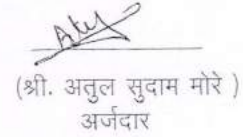 (श्री. अतुल सुदाम मोरे )
अर्जदार